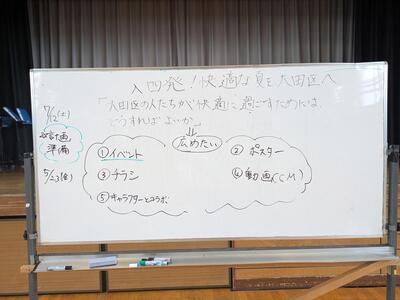 入四発!快適な夏を大田区へ
「大田区の人たちが快適に過ごすためには、
どうすればよいか」
7/12(土)
計画
準備
5/23(金)
広めたい
①イベント
② ポスター
③ チラシ
④ 動画(CM)
⑤ キャラクターとコラボ